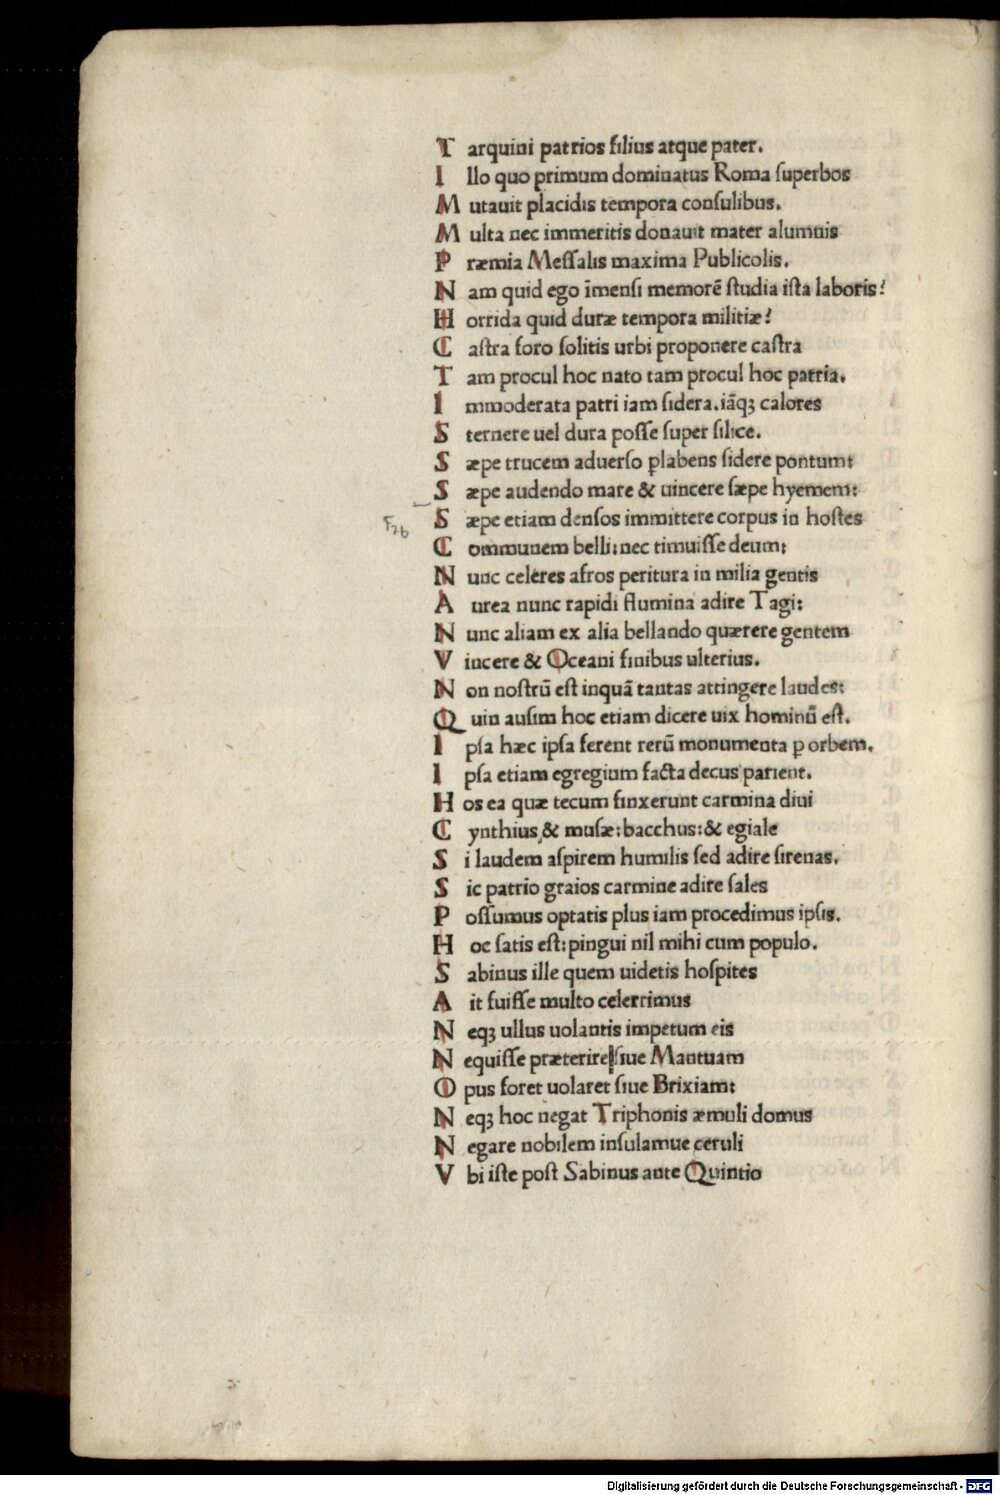 Tarquini patrios filius atque pater.
Illo quo primum dominatus Roma ſuperbos
Mutauit placidis tempora conſulibus.
Multa nec immeritis donauit mater alumnis
Præmia Meſſalis maxima Publicolis.
Nam quid ego īmenſi memorē ſtudia iſta laboris?
Horrida quid duræ tempora militiæ?
Caſtra foro ſolitis urbi proponere caſtra
Tam procul hoc nato tam procul hoc patria.
Immoderata patri iam ſidera.iāqꝫ calores
Sternere uel dura poſſe ſuper ſilice.
Sæpe trucem aduerſo ꝑlabens ſidere pontum:
Sæpe audendo mare & uincere ſæpe hyemem:
Sæpe etiam denſos immittere corpus in hoſtes
Communem belli:nec timuiſſe deum:
Nunc celeres afros peritura in milia gentis
Aurea nunc rapidi flumina adire Tagi:
Nunc aliam ex alia bellando quærere gentem
Vincere & Oceani finibus ulterius.
Non noſtrū eſt inquā tantas attingere laudes:
Quin auſim hoc etiam dicere uix hominū eſt.
Ipſa hæc ipſa ferent rerū monumenta ꝑ orbem.
Ipſa etiam egregium facta decus parient.
Hos ea quæ tecum finxerunt carmina diui
Cynthius,& muſæ:bacchus:& egiale
Si laudem aſpirem humilis ſed adire ſirenas.
Sic patrio graios carmine adire ſales
Poſſumus optatis plus iam procedimus ipſis.
Hoc ſatis eſt:pingui nil mihi cum populo.
Sabinus ille quem uidetis hoſpites
Ait fuiſſe multo celerrimus
Neqꝫ ullus uolantis impetum eis
Nequiſſe præterire ſiue Mantuam
Opus foret uolaret ſiue Brixiam:
Neqꝫ hoc negat Triphonis æmuli domus
Negare nobilem inſulamue ceruli
Vbi iſte poſt Sabinus ante Quintio
Digitalisierung gefördert durch die Deutsche Forschungsgemeinschaft - DFG